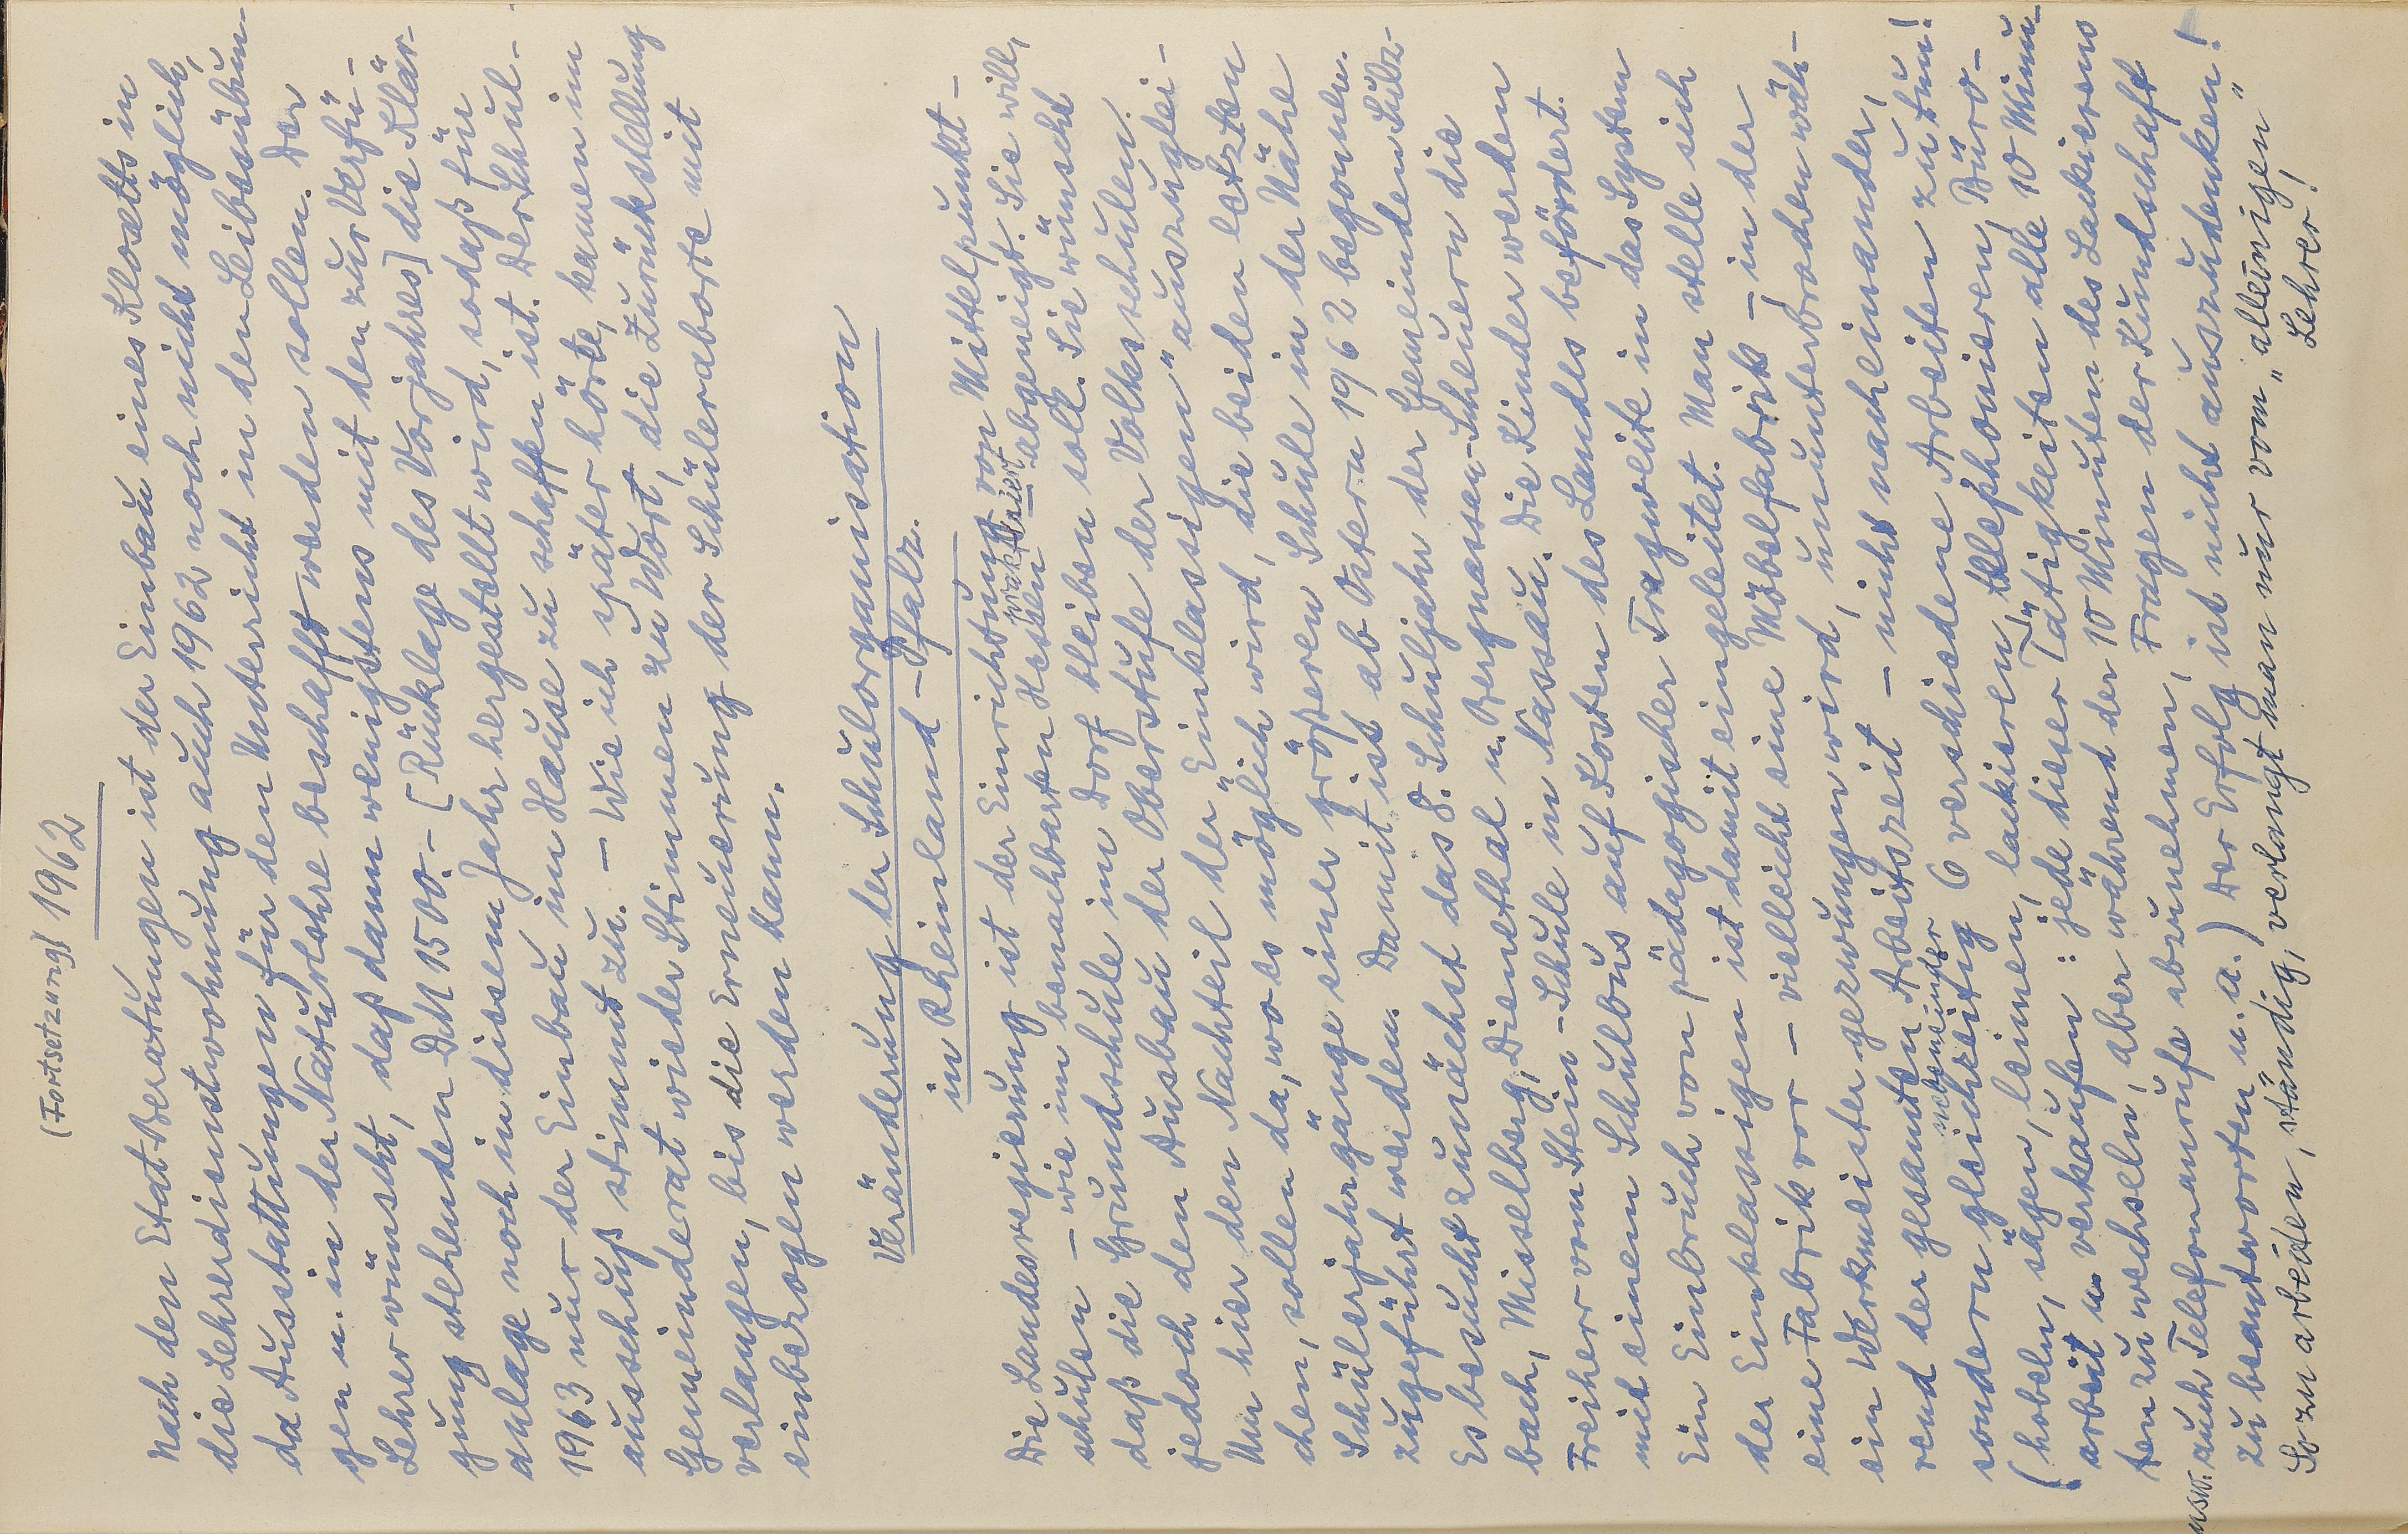 (Fortsetzung) 1962
Nach den Etat-Beratungen ist der Einbau eines Klosetts in
die Lehrerdienstwohnung auch 1962 noch nicht möglich,
da Ausstattungen für den Unterricht in den Leibesübun-
gen u. in der Naturlehre beschafft werden sollen. Der
Lehrer wünscht, daß dann wenigstens mit den zur Verfü-
gung stehenden DM 1500.- [Rücklage des Vorjahres] die Klär-
anlage noch in diesem Jahr hergestellt wird, sodaß für
1963 nur der Einbau im Hause zu schaffen ist. Der Schul-
ausschuß stimmt zu. - Wie ich später hörte, kamen im
Gemeinderat wieder Stimmen zu Wort, die Zurückstellung
verlangen, bis die Erneuerung der Schüleraborte mit
einbezogen werden kann.
Veränderung der Schulorganisation
in Rheinland-Pfalz.
Die Landesregierung ist der Einrichtung von Mittelpunkt-
schulen - wie im benachbarten Hessen praktiziert - abgeneigt. Sie will,
daß die Grundschule im Dorf bleiben soll. Sie wünscht
jedoch den Ausbau der Oberstufe der Volksschulen.
Um hier den Nachteil der „Einklassigen" auszuglei-
chen, sollen da, wo es möglich wird, die beiden letzten
Schülerjahrgänge einer größeren Schule in der Nähe
zugeführt werden. Damit ist ab Ostern 1962 begonnen.
Es besucht zunächst das 8. Schuljahr der Gemeinden Sulz-
bach, Misselberg, Dienethal u. Bergnassau-Scheuern die
Freiherr vom Stein-Schule in Nassau. Die Kinder werden
mit einem Schulbus auf Kosten des Landes befördert.
Ein Einbruch von pädagogischer Tragweite in das System
der Einklassigen ist damit eingeleitet. Man stelle sich
eine Fabrik vor - vielleicht eine Möbelfabrik - in der
ein Werkmeister gezwungen wird, ununterbrochen wäh-
rend der gesamten Arbeitszeit - nicht nacheinander,
sondern gleichzeitig nebeneinander 6 verschiedene Arbeiten zu tun!
(hobeln, sägen, leimen, lackieren, telephonieren, Büro-
arbeit u. verkaufen: jede dieser Tätigkeiten alle 10 Minu-
ten zu wechseln, aber während der 10 Minuten des Lackierens
usw. auch Telefonanrufe abzunehmen, Fragen der Kundschaft
zu beantworten u.a.) Der Erfolg ist nicht auszudenken!
So zu arbeiten, ständig, verlangt man nur vom „alleinigen"
Lehrer!